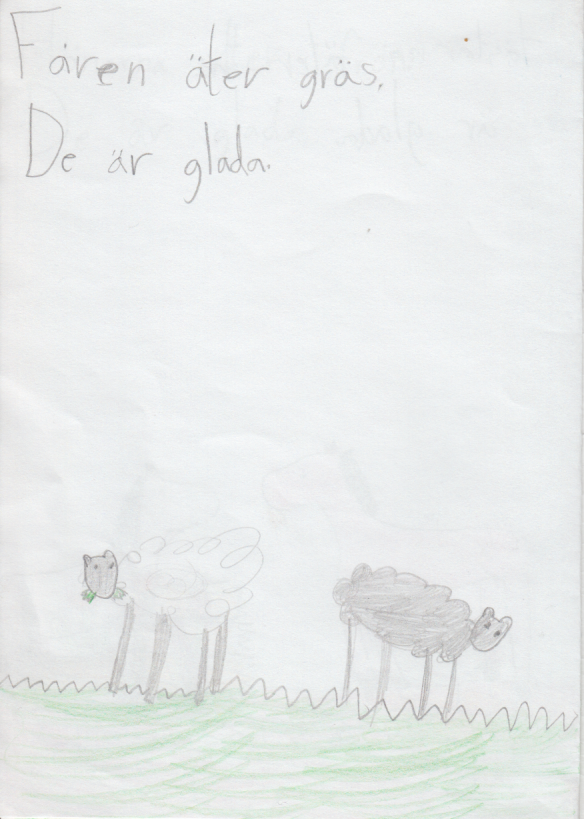 Fåren äter gräs.
De är glada.